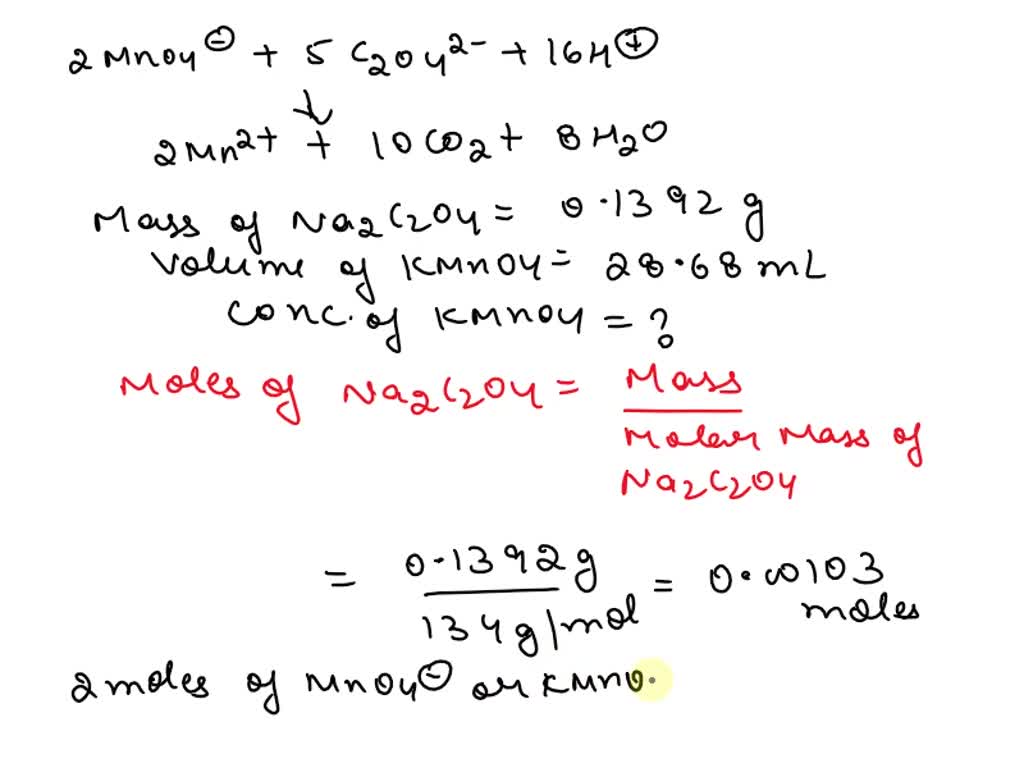 2MnO4⊖ + 5 C2O4²⁻ + 16H⊕
↓
2Mn²⁺ + 10CO2 + 8H2O
Mass of Na2C2O4 = 0.1392 g
Volume of KMnO4 = 28.68 mL
Conc. of KMnO4 = ?
Moles of Na2C2O4 = Mass
Molar Mass of
Na2C2O4
= 0.1392g / 134g/mol = 0.00103
moles
2 moles of MnO4⊖ or KMnO.